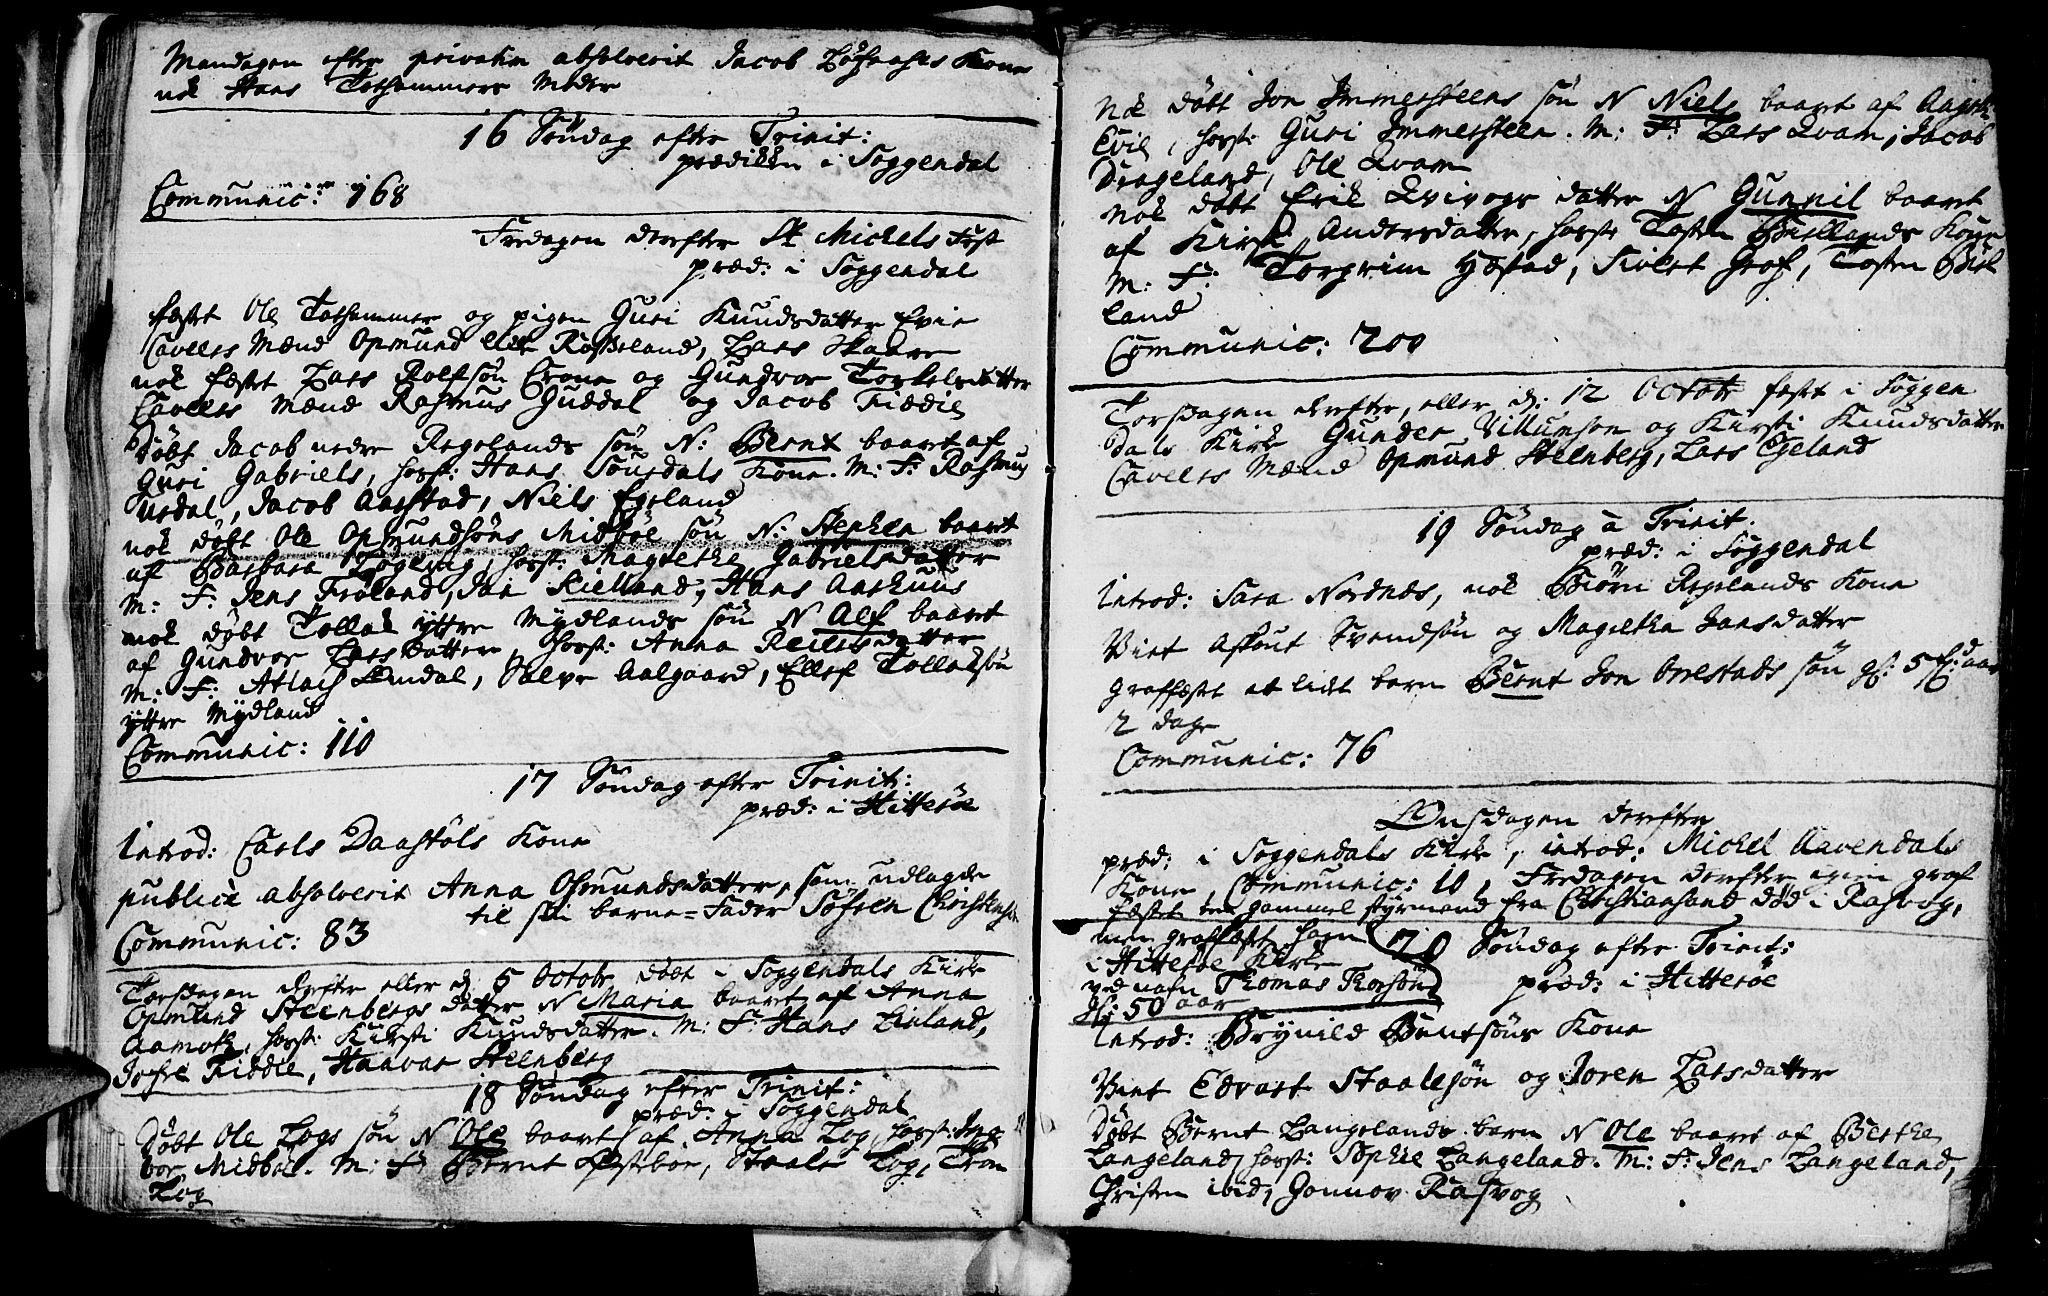 Mandagen efter privatim absolverit Jacob Kone
nok Hans Totsammers Moder
16 Søndag efter Trinit:
prædiken i Soggendal
Communic: 168
Fredagen derefter St Michels Fest
præd: i Soggendal
fæstet Ole Totsammer og pigen Guri Knudsdatter Evie
Cavells Mænd Opmund Rosseland, Lars Skaare
nok fæstet Lars Rolfsøn Crone og Gundvor Torkelsdatter
Cavells Mænd Rasmus Guddal og Jacob Fiddie
Døbt Jacob nedre Regelands søn N: Bernt baaret af
Guri Gabriels, horst: Hans Sønsdals Kone. M: F: Rasmus
Urdal, Jacob Aarstad, Niels Egeland
nok døbt Ole Opmundsøns Midbøe søn N: Stephen baaret
af Barbara horst: Magrethe Gabrielsdatter
M: F: Jens Frøland, Jan Kielland, Hans Aarhuus
nok døbt Tollak yttre Mydlands søn N Alf baaret
af Gundvor Larsdatter, horst: Anna Reiersdatter
M: F: Atlach Omdal, Salve Aalgaard, Ellef Tollaksøn
yttre Mydland
Communic: 110
17 Søndag efter Trinit:
præd: i Hitterøe
Introd: Carls Daastøls Kone
publice absolverit Anna Osmundsdatter, som udlagde
til sin barne-Fader Søfren Christensøn
Communic: 83
Torsdagen derefter eller d: 5 Octobr døbt i Soggendals Kirke
Opmund Steenbergs datter N Maria baaret af Anna
Aamoth, horst: Kirsti Knudsdatter. M: F: Hans Linland,
Jofre Fiddie, Haavar Steenberg
18 Søndag efter Trinit:
præd: i Soggendal
Døbt Ole Logs søn N Ole baaret af Anna Log, horst: Inge
bor Midbøe. M: F: Bernt Østebøe, Staale Log, Tron
Log
Nok døbt Jon Immersteens søn N Niels baaret af Aagothe
Evie, horst: Guri Immersteen. M: F: Lars Qvam, Jacob
Drageland, Ole Qvam
nok døbt Erik Qvivogs datter N Gunnil baaret
af Kirsti Andersdatter, horst: Tosten Birklands Kone
M: F: Torgrim Hæstad, Sivert Grof, Tosten Birk
land
Communic: 200
Torsdagen derefter, eller d: 12 Octobr fæstet i Soggen
dals Kirke Gunder Villumsøn og Kirsti Knudsdatter
Cavells Mænd Opmund Steenberg, Lars Egeland
19 Søndag a Trinit:
præd: i Soggendal
Introd: Sara Nordnes, nok Biørn Regelands Kone
Viet Aslout Svendsøn og Magretha Jansdatter
Graffæstet et lidet barn Bernt Jon Ørrestads søn gl: 5 fierd: aar
2 dage
Communic: 76
Onsdagen derefter
præd: i Soggendals Kirke, introd: Michel Ravendals
Kone, Communic: 10, Fredagen derefter igien graf
fæstet en gammel styrmand fra Christiansand død i Rasvog,
men graffæstet ham
i Hitterøe Kirke
ved nafn Thomas Thorsøn
gl: 50 aar
20 Søndag efter Trinit:
præd: i Hitterøe
Introd: Brynild Berntsøns Kone
Viet Edvart Staalesøn og Joren Larsdatter
Døbt Bernt Langelands barn N Ole baaret af Berthe
Langeland, horst: Sophie Langeland. M: F: Jens Langeland,
Christen ibid, Gonnov Rasvog